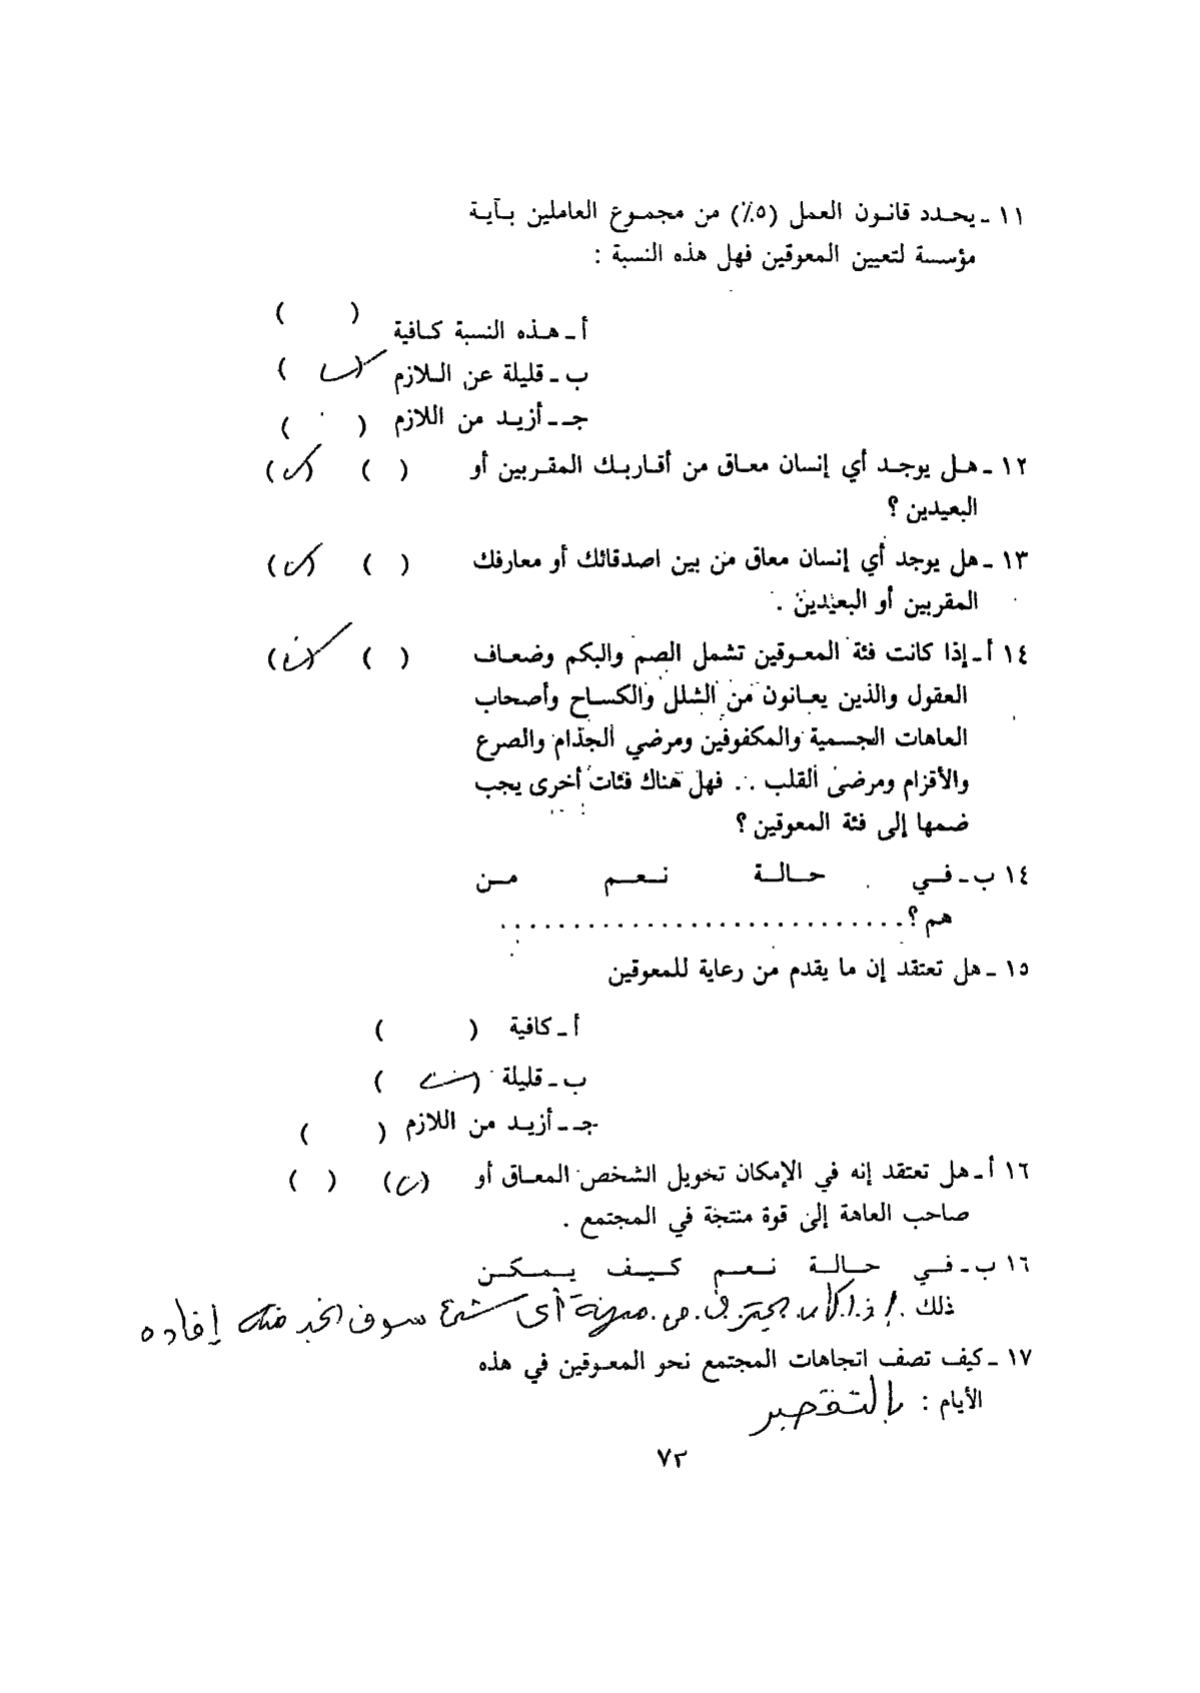 ١١ ـ يحدد قانون العمل (٥٪) من مجموع العاملين بآية
مؤسسة لتعيين المعوقين فهل هذه النسبة :
أ ـ هذه النسبة كافية (    )
ب ـ قليلة عن اللازم (    )
جـ ـ أزيد من اللازم (    )
١٢ ـ هل يوجد أي إنسان معاق من أقاربك المقربين أو (  ) (  )
البعيدين ؟
١٣ ـ هل يوجد أي إنسان معاق من بين اصدقائك أو معارفك (  ) (  )
المقربين أو البعيدين .
١٤ أ ـ إذا كانت فئة المعوقين تشمل الصم والبكم وضعاف (  ) (  )
العقول والذين يعانون من الشلل والكساح وأصحاب
العاهات الجسمية والمكفوفين ومرضي الجذام والصرع
والأقزام ومرضى القلب .. فهل هناك فئات أخرى يجب
ضمها إلى فئة المعوقين ؟
١٤ ب ـ في حالة نعم من
هم ؟ ............................
١٥ ـ هل تعتقد إن ما يقدم من رعاية للمعوقين
أ ـ كافية (    )
ب ـ قليلة (    )
جـ ـ أزيد من اللازم (    )
١٦ أ ـ هل تعتقد إنه في الإمكان تخويل الشخص المعاق أو (  ) (  )
صاحب العاهة إلى قوة منتجة في المجتمع .
١٦ ب ـ في حالة نعم كيف يمكن
ذلك . إذا كان مهنة أى شئ سوف منه إفاده
١٧ ـ كيف تصف اتجاهات المجتمع نحو المعوقين في هذه
الأيام : بالتقصير
٧٢